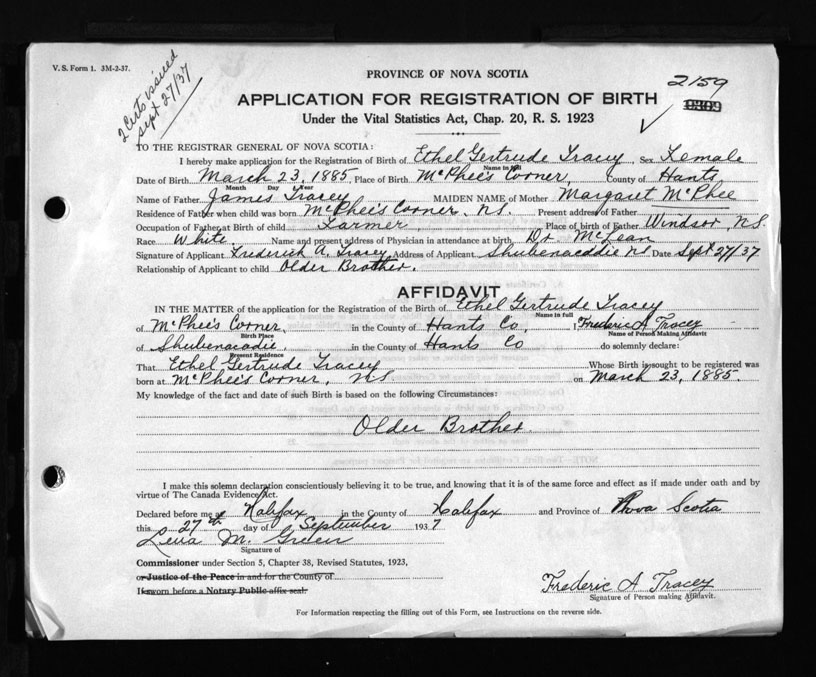 V. S. Form 1. 3M-2-37.
2 Certs issued
Sept 27/37
PROVINCE OF NOVA SCOTIA
2159
APPLICATION FOR REGISTRATION OF BIRTH
Under the Vital Statistics Act, Chap. 20, R. S. 1923
TO THE REGISTRAR GENERAL OF NOVA SCOTIA:
I hereby make application for the Registration of Birth of Ethel Gertrude Tracey, Sex Female
Name in full
Date of Birth March 23, 1885, Place of Birth McPhee's Corner, County of Hants
Month Day Year
Name of Father James Tracey MAIDEN NAME of Mother Margaret McPhee
Residence of Father when child was born McPhee's Corner, N.S. Present address of Father
Occupation of Father at Birth of child Farmer. Place of birth of Father Windsor, N.S.
Race White. Name and present address of Physician in attendance at birth Dr McLean
Signature of Applicant Frederick A. Tracey Address of Applicant Shubenacaddie NS Date Sept 27/37
Relationship of Applicant to child Older Brother.
AFFIDAVIT
IN THE MATTER of the application for the Registration of the Birth of Ethel Gertrude Tracey
Name in full
of McPhee's Corner, in the County of Hants Co, I Frederic A Tracey
Birth Place Name of Person Making Affidavit
of Shubenacadie, in the County of Hants Co do solemnly declare:
Present Residence
That Ethel Gertrude Tracey Whose Birth is sought to be registered was
born at McPhee's Corner, N.S on March 23, 1885.
My knowledge of the fact and date of such Birth is based on the following Circumstances:
Older Brother
I make this solemn declaration conscientiously believing it to be true, and knowing that it is of the same force and effect as if made under oath and by
virtue of The Canada Evidence Act.
Declared before me at Halifax in the County of Halifax and Province of Nova Scotia
this 27th day of September 1937
Lena M. Green
Signature of
Commissioner under Section 5, Chapter 38, Revised Statutes, 1923,
or Justice of the Peace in and for the County of
If sworn before a Notary Public affix seal.
Frederic A Tracey
Signature of Person making Affidavit.
For Information respecting the filling out of this Form, see Instructions on the reverse side.